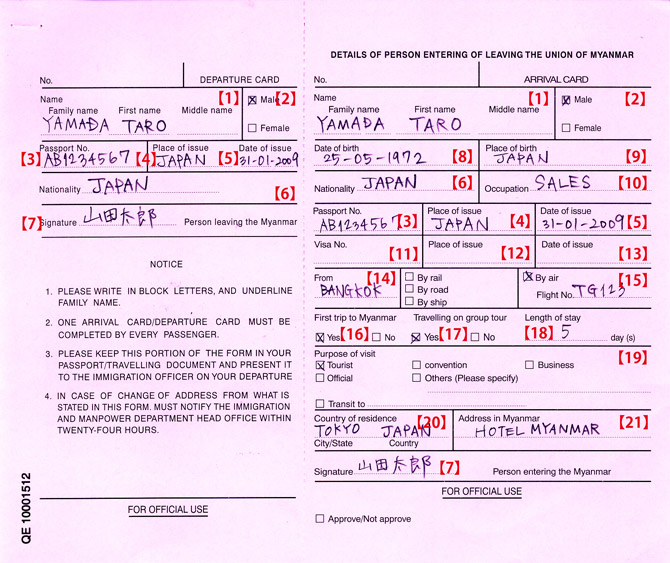 No. DEPARTURE CARD
Name 【1】 ☒ Male 【2】
Family name First name Middle name
YAMADA TARO ☐ Female
Passport No. Place of issue Date of issue
【3】 AB1234567 【4】 JAPAN 【5】 31-01-2009
Nationality JAPAN 【6】
【7】 Signature 山田太郎 Person leaving the Myanmar
NOTICE
1. PLEASE WRITE IN BLOCK LETTERS, AND UNDERLINE
FAMILY NAME.
2. ONE ARRIVAL CARD/DEPARTURE CARD MUST BE
COMPLETED BY EVERY PASSENGER.
3. PLEASE KEEP THIS PORTION OF THE FORM IN YOUR
PASSPORT/TRAVELLING DOCUMENT AND PRESENT IT
TO THE IMMIGRATION OFFICER ON YOUR DEPARTURE
4. IN CASE OF CHANGE OF ADDRESS FROM WHAT IS
STATED IN THIS FORM. MUST NOTIFY THE IMMIGRATION
AND MANPOWER DEPARTMENT HEAD OFFICE WITHIN
TWENTY-FOUR HOURS.
FOR OFFICIAL USE
QE 10001512
DETAILS OF PERSON ENTERING OF LEAVING THE UNION OF MYANMAR
No. ARRIVAL CARD
Name 【1】 ☒ Male 【2】
Family name First name Middle name
YAMADA TARO ☐ Female
Date of birth Place of birth
25-05-1972 【8】 JAPAN 【9】
Nationality JAPAN 【6】 Occupation SALES 【10】
Passport No. Place of issue Date of issue
AB1234567 【3】 JAPAN 【4】 31-01-2009 【5】
Visa No. Place of issue Date of issue
【11】 【12】 【13】
From 【14】 ☐ By rail ☒ By air 【15】
BANGKOK ☐ By road Flight No. TG123
☐ By ship
First trip to Myanmar Travelling on group tour Length of stay
☒ Yes 【16】 ☐ No ☒ Yes 【17】 ☐ No 【18】 5 day (s)
Purpose of visit 【19】
☒ Tourist ☐ convention ☐ Business
☐ Official ☐ Others (Please specify)
☐ Transit to
Country of residence 【20】 Address in Myanmar 【21】
TOKYO JAPAN HOTEL MYANMAR
City/State Country
Signature 山田太郎 【7】 Person entering the Myanmar
FOR OFFICIAL USE
☐ Approve/Not approve